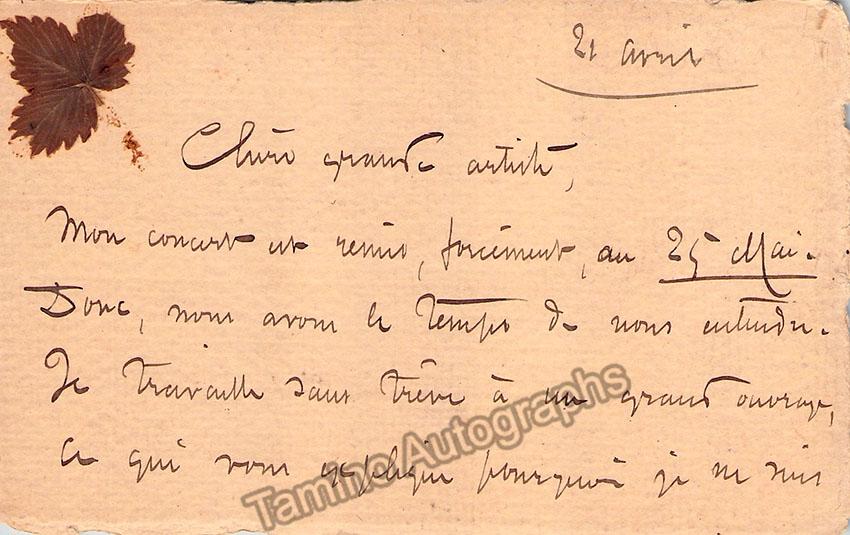 21 avril
Chère grande artiste,
Mon concert est remis, forcément, au 25 Mai.
Donc, nous avons le temps de nous entendre.
Je travaille sans trêve à un grand ouvrage,
ce qui vous explique pourquoi je ne suis
Tamino Autographs